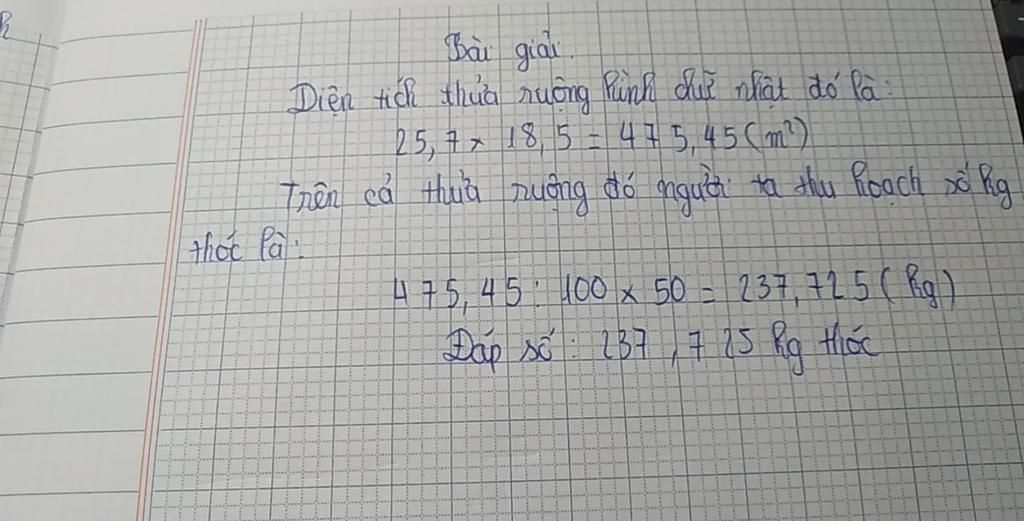 Bài giải.
Diện tích thửa ruộng hình chữ nhật đó là:
25,7 x 18,5 = 475,45 (m²)
Trên cả thửa ruộng đó người ta thu hoạch số kg
thóc là:
475,45 : 100 x 50 = 237,725 (kg)
Đáp số: 237,725 kg thóc